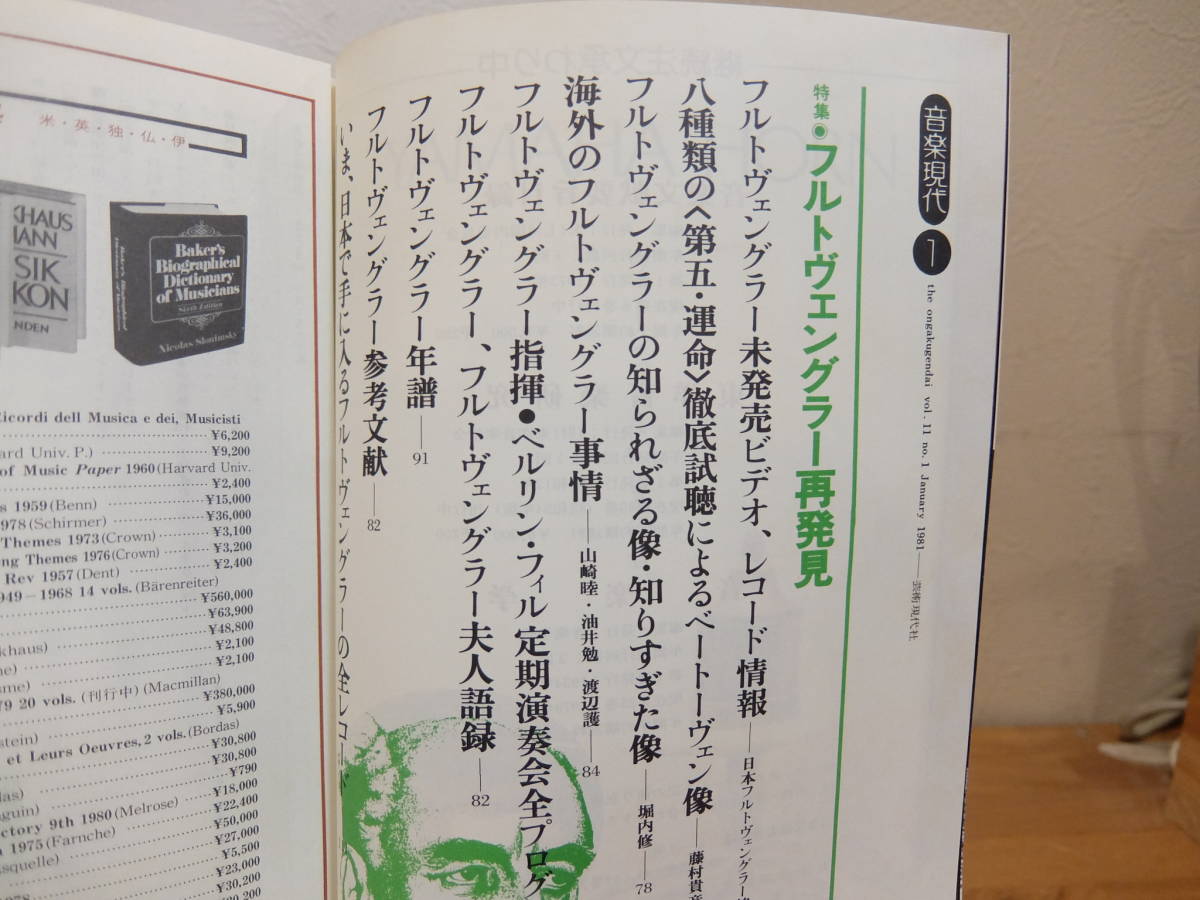 音楽現代
1
the ongakugendai vol. 11 no. 1 January 1981——芸術現代社
特集●フルトヴェングラー再発見
フルトヴェングラー未発売ビデオ、レコード情報——日本フルトヴェングラー
八種類の〈第五・運命〉徹底試聴によるベートーヴェン像——藤村貴彦
フルトヴェングラーの知られざる像・知りすぎた像——堀内修——78
海外のフルトヴェングラー事情——山崎睦・油井勉・渡辺護——84
フルトヴェングラー指揮●ベルリン・フィル定期演奏会全プログ
フルトヴェングラー、フルトヴェングラー夫人語録——82
フルトヴェングラー年譜——91
フルトヴェングラー参考文献——82
いま、日本で手に入るフルトヴェングラーの全レコード
米・英・独・仏・伊
CHAUS
MANN
SIK
KON
NDEN
Baker's
Biographical
Dictionary
of Musicians
Sixth Edition
Nicolas Slonimsky
Ricordi dell Musica e dei, Musicisti
¥6,200
ard Univ. P.) ¥9,200
of Music Paper 1960 (Harvard Univ.
¥2,400
s 1959 (Benn) ¥15,000
1978 (Schirmer) ¥36,000
Themes 1973 (Crown) ¥3,100
ng Themes 1976 (Crown) ¥3,200
Rev 1957 (Dent) ¥2,400
949－1968 14 vols. (Bärenreiter)
¥560,000
¥63,900
khaus) ¥48,800
ne) ¥2,100
sme) ¥2,100
79 20 vols. (刊行中) (Macmillan)
¥380,000
stein) ¥5,900
et Leurs Oeuvres, 2 vols. (Bordas)
¥30,800
¥30,800
las) ¥790
guin) ¥18,000
ctory 9th 1980 (Melrose) ¥22,400
1975 (Farnche) ¥50,000
squelle) ¥27,000
¥5,500
¥23,000
¥30,200